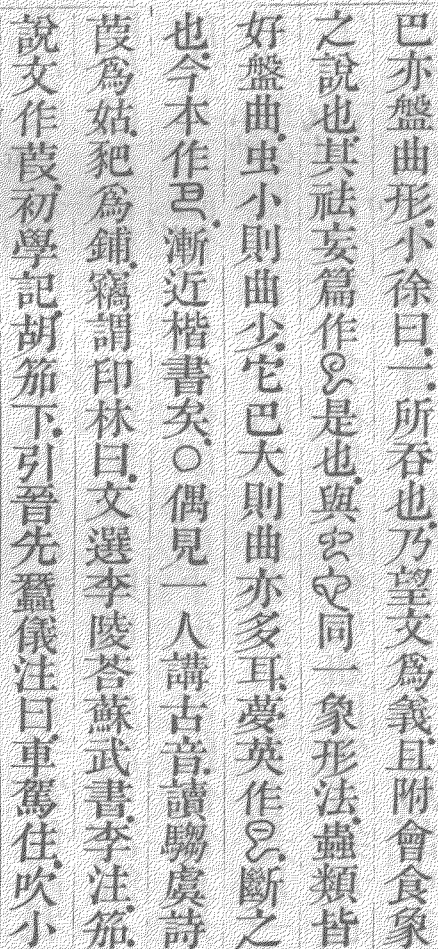 巴亦盤曲形小徐曰一所吞也乃望文爲義且附會食象
之說也其祛妄篇作是也與同一象形法蟲類皆
好盤曲虫小則曲少它巴大則曲亦多耳夢英作斷之
也今本作漸近楷書矣○偶見一人講古音讀騶虞詩
葭爲姑豝爲鋪竊謂印林曰文選李陵荅蘇武書李注笳
說文作葭初學記胡笳下引晉先蠶儀注曰車駕住吹小